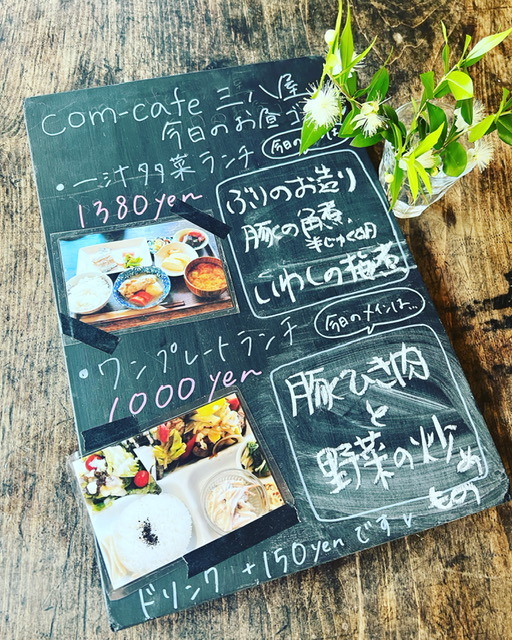 com-cafe 三八屋
今日のお昼
・一汁多菜ランチ
1380yen
今日の
ぶりのお造り
豚の角煮
半じゅく卵
いわしの梅煮
・ワンプレートランチ
1000yen
今日のメインは…
豚ひき肉
と
野菜の炒め
もの
ドリンク +150yenです